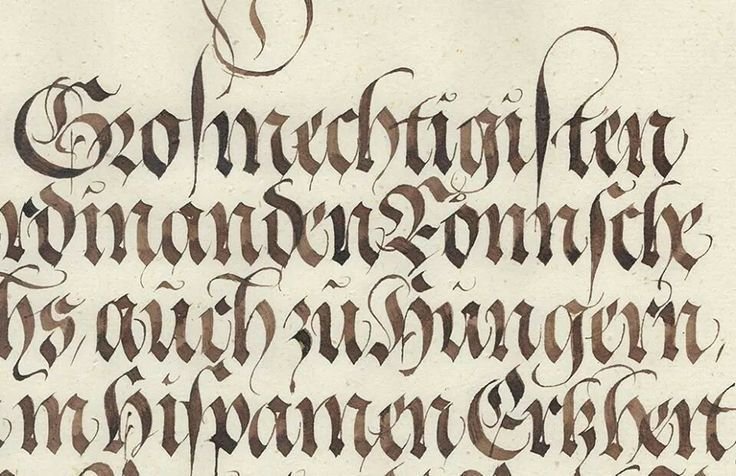 Grosmechtigisten
rdinanden Rönnsche
hs, auch zu Hungern,
m Hispanien Erkhert